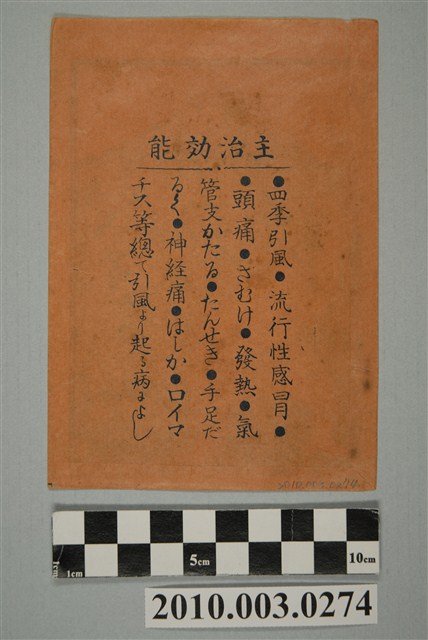 主治効能
●四季引風●流行性感冒●
●頭痛●さむけ●發熱●氣
管支かたる●たんせき●手足だ
るく●神経痛●はしか●ロイマ
チス等總て引風より起る病によし
2010.003.0274
1cm
5cm
10cm
2010.003.0274